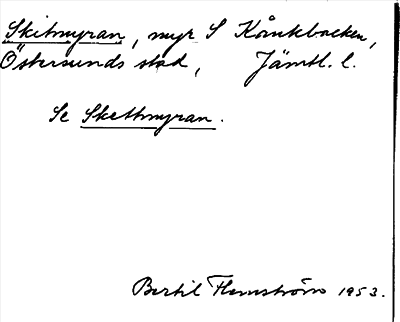 Skitmyran, myr S Kånkbacken,
Östersunds stad, Jämtl. l.
Se Skettmyran.
Bertil Flemström 1953.